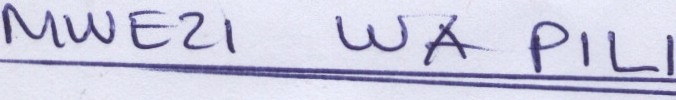 MWEZI WA PILI